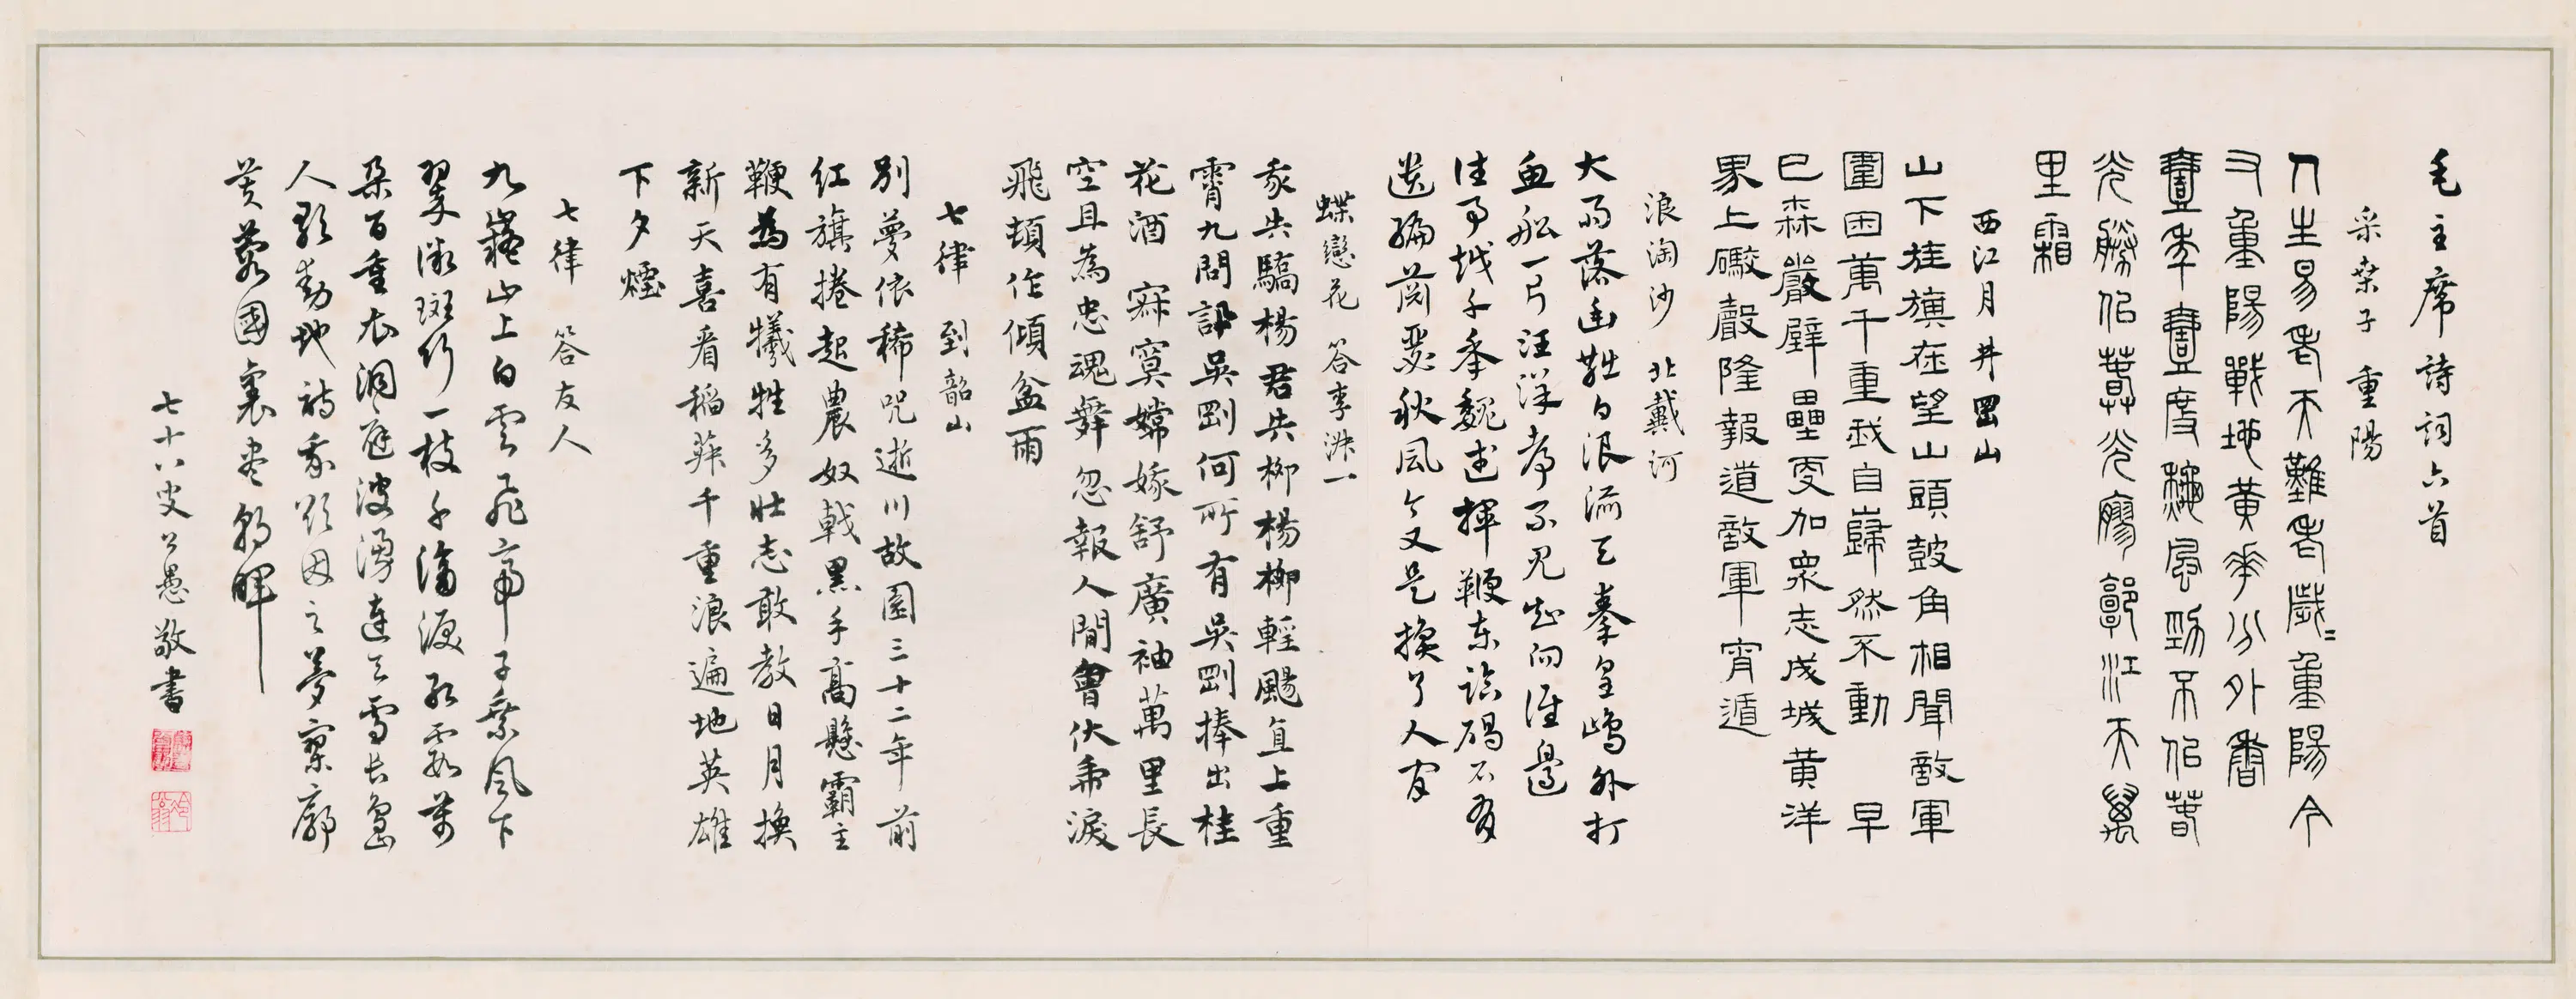 毛主席詩詞六首
采桑子 重陽
人生易老天難老歲〻重陽今
又重陽戰地黃華分外香
壹年壹度穐風勁不佀萅
炗勝佀萅炗廖郭江天萬
里霜
西江月 井岡山
山下旌旗在望山頭鼓角相聞敵軍
圍困萬千重我自巋然不動 早
已森嚴壁壘更加眾志成城黃洋
界上礮聲隆報道敵軍宵遁
浪淘沙 北戴河
大雨落幽燕白浪滔天秦皇島外打
魚船一片汪洋都不見知向誰邊
往事越千年魏武揮鞭東臨碣石有
遺編蕭瑟秋風今又是換了人間
蝶戀花 答李淑一
我失驕楊君失柳楊柳輕颺直上重
霄九問訊吳剛何所有吳剛捧出桂
花酒 寂寞嫦娥舒廣袖萬里長
空且為忠魂舞忽報人間曾伏虎淚
飛頓作傾盆雨
七律 到韶山
別夢依稀咒逝川故園三十二年前
紅旗捲起農奴戟黑手高懸霸主
鞭為有犧牲多壯志敢教日月換
新天喜看稻菽千重浪遍地英雄
下夕煙
七律 答友人
九嶷山上白雲飛帝子乘風下
翠微斑竹一枝千滴淚紅霞萬
朵百重衣洞庭波湧連天雪長島
人歌動地詩我欲因之夢寥廓
芙蓉國裏盡朝暉
七十八叟公愚敬書